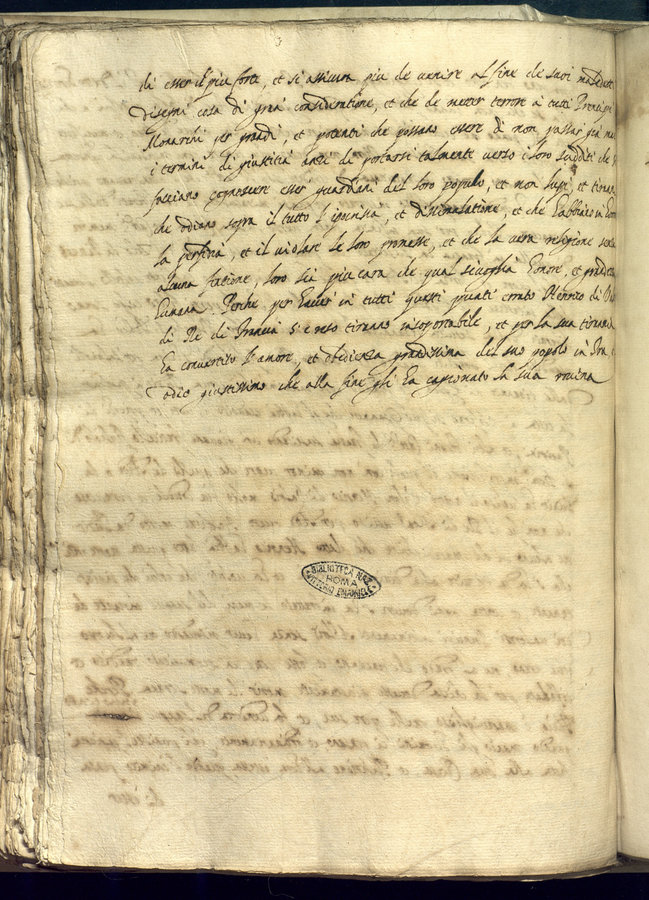 di esser il piu forte, et si assicura piu de venire al fine de suoi maledetti
disegni cosa di gran consideratione, et che de metter terrore à tutti Prencipi
Monarchi per grandi, et potenti che possano essere di non passar già mai
i termini di giustitia anzi de portarsi talmente verso i loro sudditi che
facciano cognoscere esser guardiani del loro populo, et non lupi, et tiranni
che odiano sopra il tutto l'ipocrisia, et dissimulatione, et che habbiano in horrore
la perfidia, et il violare le loro promesse, et che la vera religione senza
alcuna fittione, loro sia piu cara che qual sivoglia honore, et grandezza
humana. Perche per haver in tutti questi punti errato Henrico di
di Re di Francia s'è reso tiranno insoportabile, et per la sua tirannia
ha convertito l'amore, et obedienza grandissima del suo popolo in
odio giustissimo che alla fine gli ha cagionato la sua rovina
BIBLIOTECA NAZ.
ROMA
VITTORIO EMANUELE